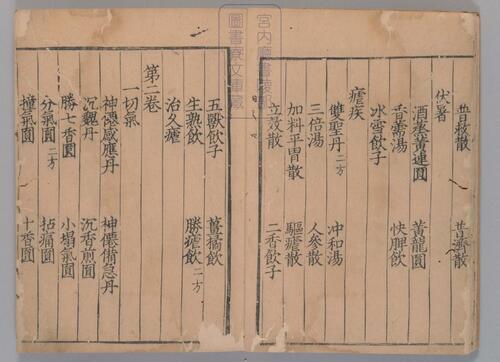 宮内廳書陵部
圖書寮文庫藏
普救散 普濟散
伏暑
酒蒸黃連圓 黃龍圓
香薷湯 快脾飲
氷雪飲子
瘧疾
雙聖丹二方 冲和湯
三倍湯 人參散
加料平胃散 驅瘧散
立效散 二香飲子
五獸飲子 薑橘飲
生熟飲 勝瘧飲二方
治久瘧
第二卷
一切氣
神僊感應丹 神僊備急丹
沉丹 沉香煎圓
勝七香圓 小塌氣圓
分氣圓二方 拈痛圓
撞氣圓 十香圓